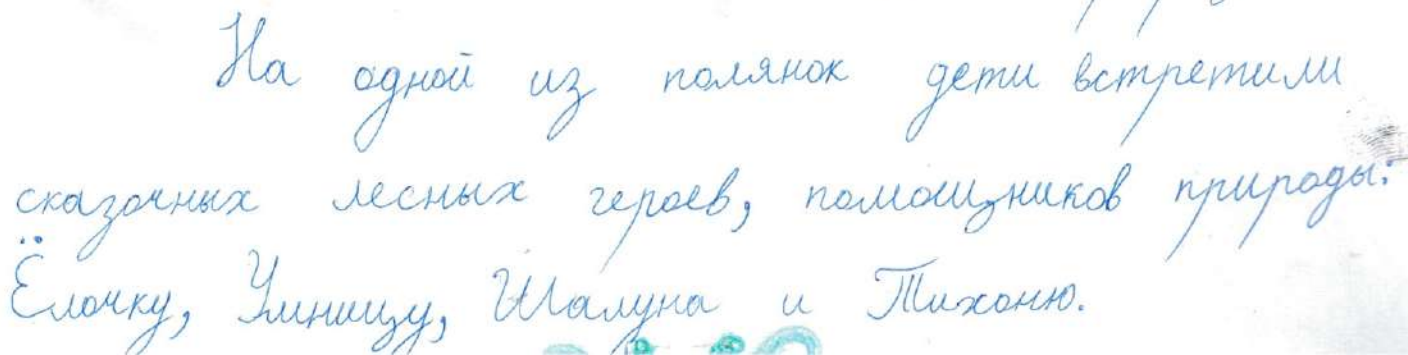 На одной из полянок дети встретили
сказочных лесных героев, помощников природы:
Ёлочку, Умницу, Шалуна и Тихоню.